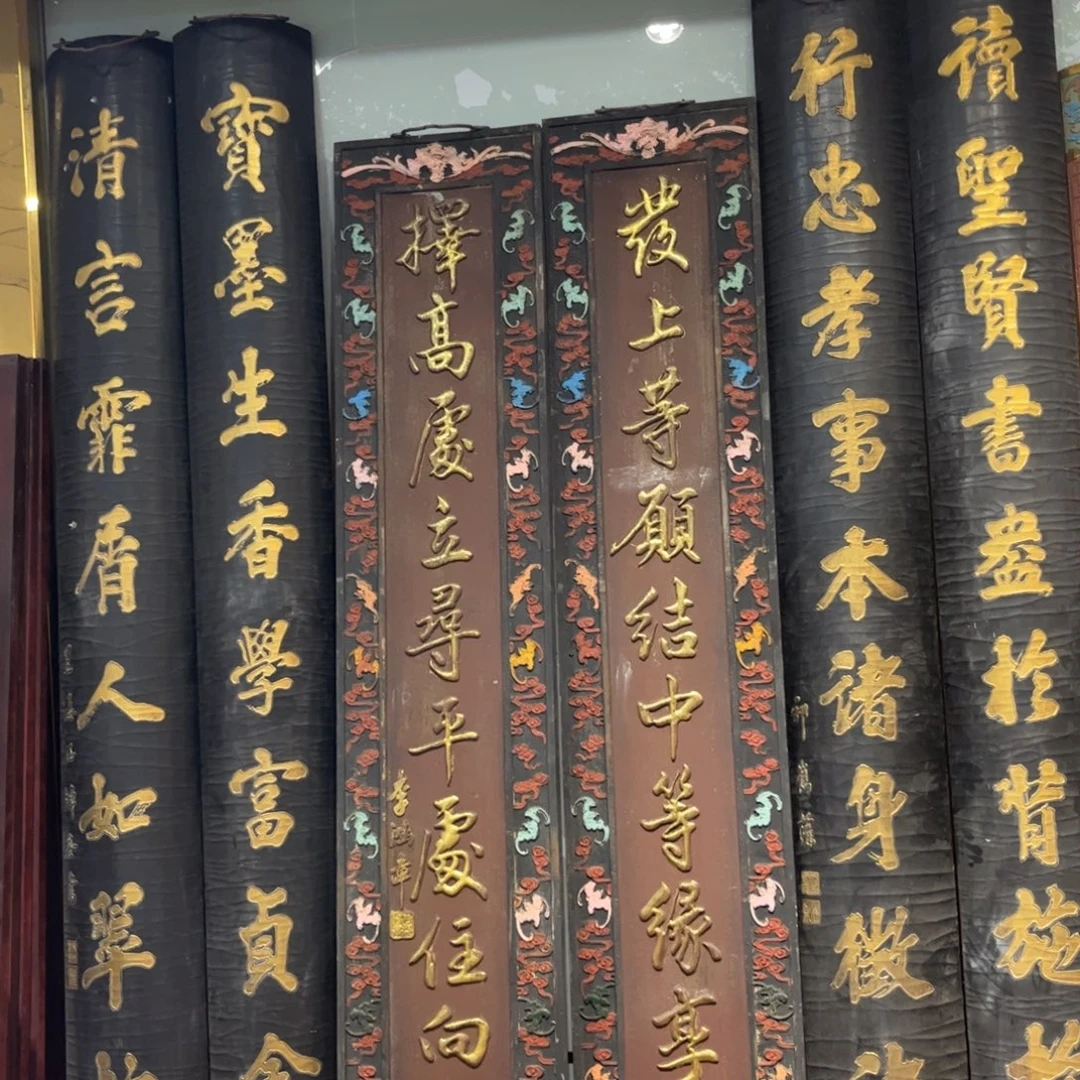 讀聖賢書盎於背施
行忠孝事本諸身徵
發上等願結中等緣享
擇高處立尋平處住向
李鴻章
寶墨生香學富貞
清言霏屑人如翠